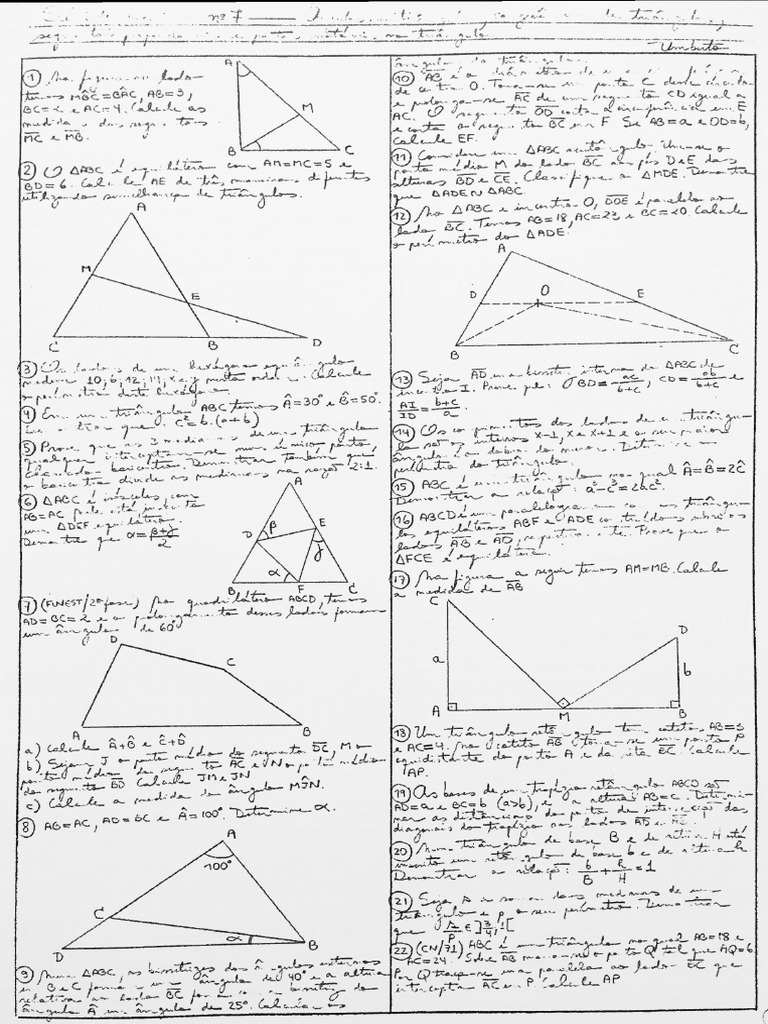 nº 7
Umberto
① Na figura ao lado
temos MB̂C=BÂC, AB=3,
BC=2 e AC=4. Calcule as
medidas dos segmentos
MC e MB.
A
M
B
C
② O △ABC é equilátero com AM=MC=5 e
BD=6. Calcule AE de três maneiras diferentes
utilizando semelhança de triângulos.
A
M
E
C
B
D
③ Os lados de um hexágono equiângulo
medem 10, 6, 12, 11, x e y nesta ordem. Calcule
o perímetro deste hexágono.
④ Em um triângulo ABC temos Â=30° e B̂=50°.
que c²=b.(a+b)
⑤ Prove que as 3 medianas de um triângulo
qualquer interceptam-se num único ponto,
chamado baricentro. Demonstrar também que
o baricentro divide as medianas na razão 2:1.
⑥ △ABC é isósceles, com
AB=AC
um △DEF equilátero.
Demonstre que α=β+γ/2
A
D
β
E
γ
α
B
F
C
⑦ (FUVEST/2ª fase) No quadrilátero ABCD, temos
AD=BC=2 e o prolongamento desses lados formam
um ângulo de 60°
D
C
A
B
a) Calcule Â+B̂ e Ĉ+D̂
b) Sejam J o ponto médio do segmento DC, M o
ponto médio do segmento AC e N o ponto médio
do segmento BD. Calcule JM e JN
c) Calcule a medida do ângulo MĴN.
⑧ AB=AC, AD=BC e Â=100°. Determine α.
A
100°
C
α
D
B
⑨ Num △ABC, as bissetrizes dos ângulos externos
em B e C formam um ângulo de 40° e a altura
relativa ao lado BC forma com a bissetriz do
ângulo Â um ângulo de 25°. Calcular os
ângulos do triângulo.
⑩ AB é o diâmetro de
de centro O. Toma-se um ponto C
e prolonga-se AC de um segmento CD igual a
AC. O segmento OD corta a circunferência em E
e corta o segmento BC em F. Se AB=a e OD=b,
calcule EF.
⑪ Considere um △ABC acutângulo. Une-se o
ponto médio M do lado BC aos pés D e E das
alturas BD e CE. Classifique o △MDE. Demonstre
que △ADE~△ABC.
⑫ No △ABC e incentro O, DOE é paralelo ao
lado BC. Temos AB=18, AC=23 e BC=20. Calcule
o perímetro do △ADE.
A
D
O
E
B
C
⑬ Seja AD uma bissetriz interna do △ABC de
incentro I. Prove que: BD=ac/b+c, CD=ab/b+c e
AI/ID=b+c/a.
⑭ Os comprimentos dos lados de um triângulo
são os inteiros x-1, x e x+1 e o seu maior
ângulo é o dobro do menor. Determine o
perímetro do triângulo.
⑮ ABC é um triângulo no qual Â=B̂=2Ĉ
Demonstrar a relação:
⑯ ABCD é um paralelogramo e os triângulos
equiláteros ABF e ADE construídos sobre os
lados AB e AD, respectivamente. Prove que o
△FCE é equilátero.
⑰ Na figura a seguir temos AM=MB. Calcule
a medida de AB
C
a
D
b
A
M
B
⑱ Um triângulo retângulo tem catetos AB=3
e AC=4. No cateto AB toma-se um ponto P
equidistante do ponto A e da reta BC. Calcule
AP.
⑲ As bases de um trapézio retângulo ABCD são
AD=a e BC=b (a>b), e a altura AB=c. Determinar
as distâncias do ponto de interseção das
diagonais do trapézio aos lados
⑳ Num triângulo de base B e de altura H está
inscrito um retângulo de base b e de altura h.
Demonstrar a relação: b/B + h/H = 1
㉑ Seja s a soma das medianas de um
triângulo e p o seu perímetro. Demonstrar
que s/p ∈ ]3/4, 1[
㉒ (CN/71) ABC é um triângulo no qual AB=18 e
AC=24. Sobre AB marca-se o ponto Q tal que AQ=6.
Por Q traça-se uma paralela ao lado BC que
intercepta AC em P. Calcule AP